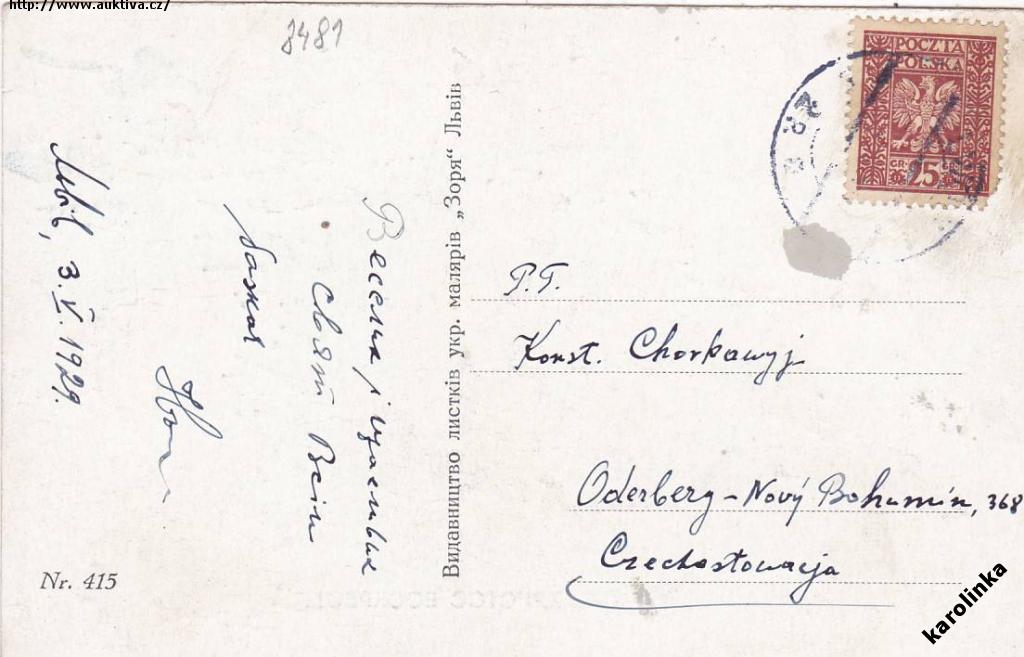 http://www.auktiva.cz/
3481
POCZTA
POLSKA
GR. 25
Львів, 3.V.1929.
Веселих і щасливих
Свят Всім
бажає
Видавництво листків укр. малярів „Зоря“ Львів
P.T.
Konst. Chorkawyj
Oderberg – Nový Bohumín, 368
Czechosłowacja
Nr. 415
ХРИСТОС ВОСКРЕС!
karolinka